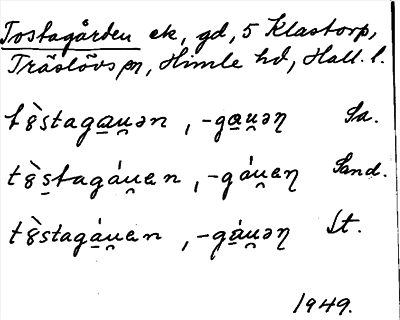 Tostagården ek, gd, 5 Klastorp,
Träslövs sn, Himle hd, Hall. l.
tȣ̀staga̱u̯ən , -ga̱u̯əη Sa.
tȣ̀s̱tagáu̯en , -gáu̯eη Sand.
tȣ̀stagá̱u̯en , -gá̱u̯əη Lt.
1949.